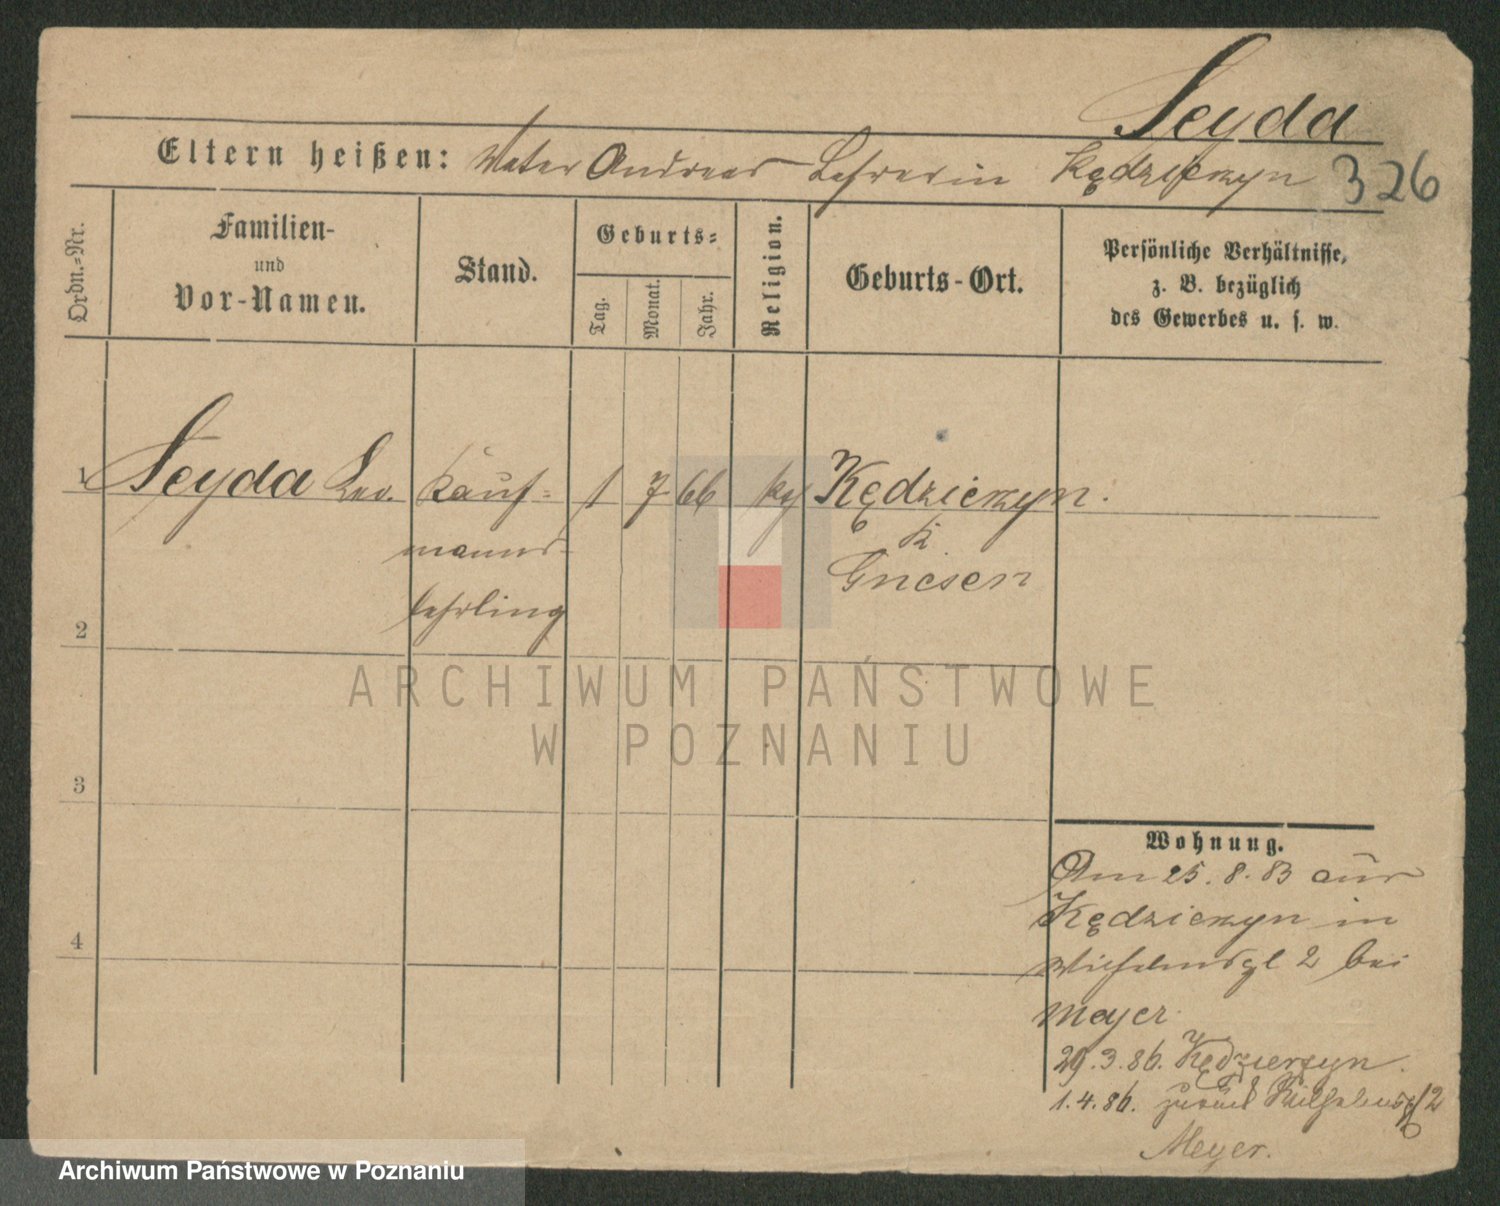 Seyda
Eltern heißen: Vater Andreas Lehrer in Kędzierzyn 326
Ordn.-Nr.
Familien-
und
Vor-Namen.
Stand.
Geburts-
Tag.
Monat.
Jahr.
Religion.
Geburts-Ort.
Persönliche Verhältnisse,
z. B. bezüglich
des Gewerbes u. s. w.
1 Seyda Leo. Kauf- 1 7 66 kath Kędzierzyn.
manns- K
lehrling Gnesen
2
3
4
Wohnung.
Am 25.8.83 aus
Kędzierzyn in
Wilhelmspl 2 bei
Meyer
29.3.86. Kędzierzyn.
1.4.86. zurück Wilhelmspl 2
Meyer.
ARCHIWUM PAŃSTWOWE
W POZNANIU
Archiwum Państwowe w Poznaniu